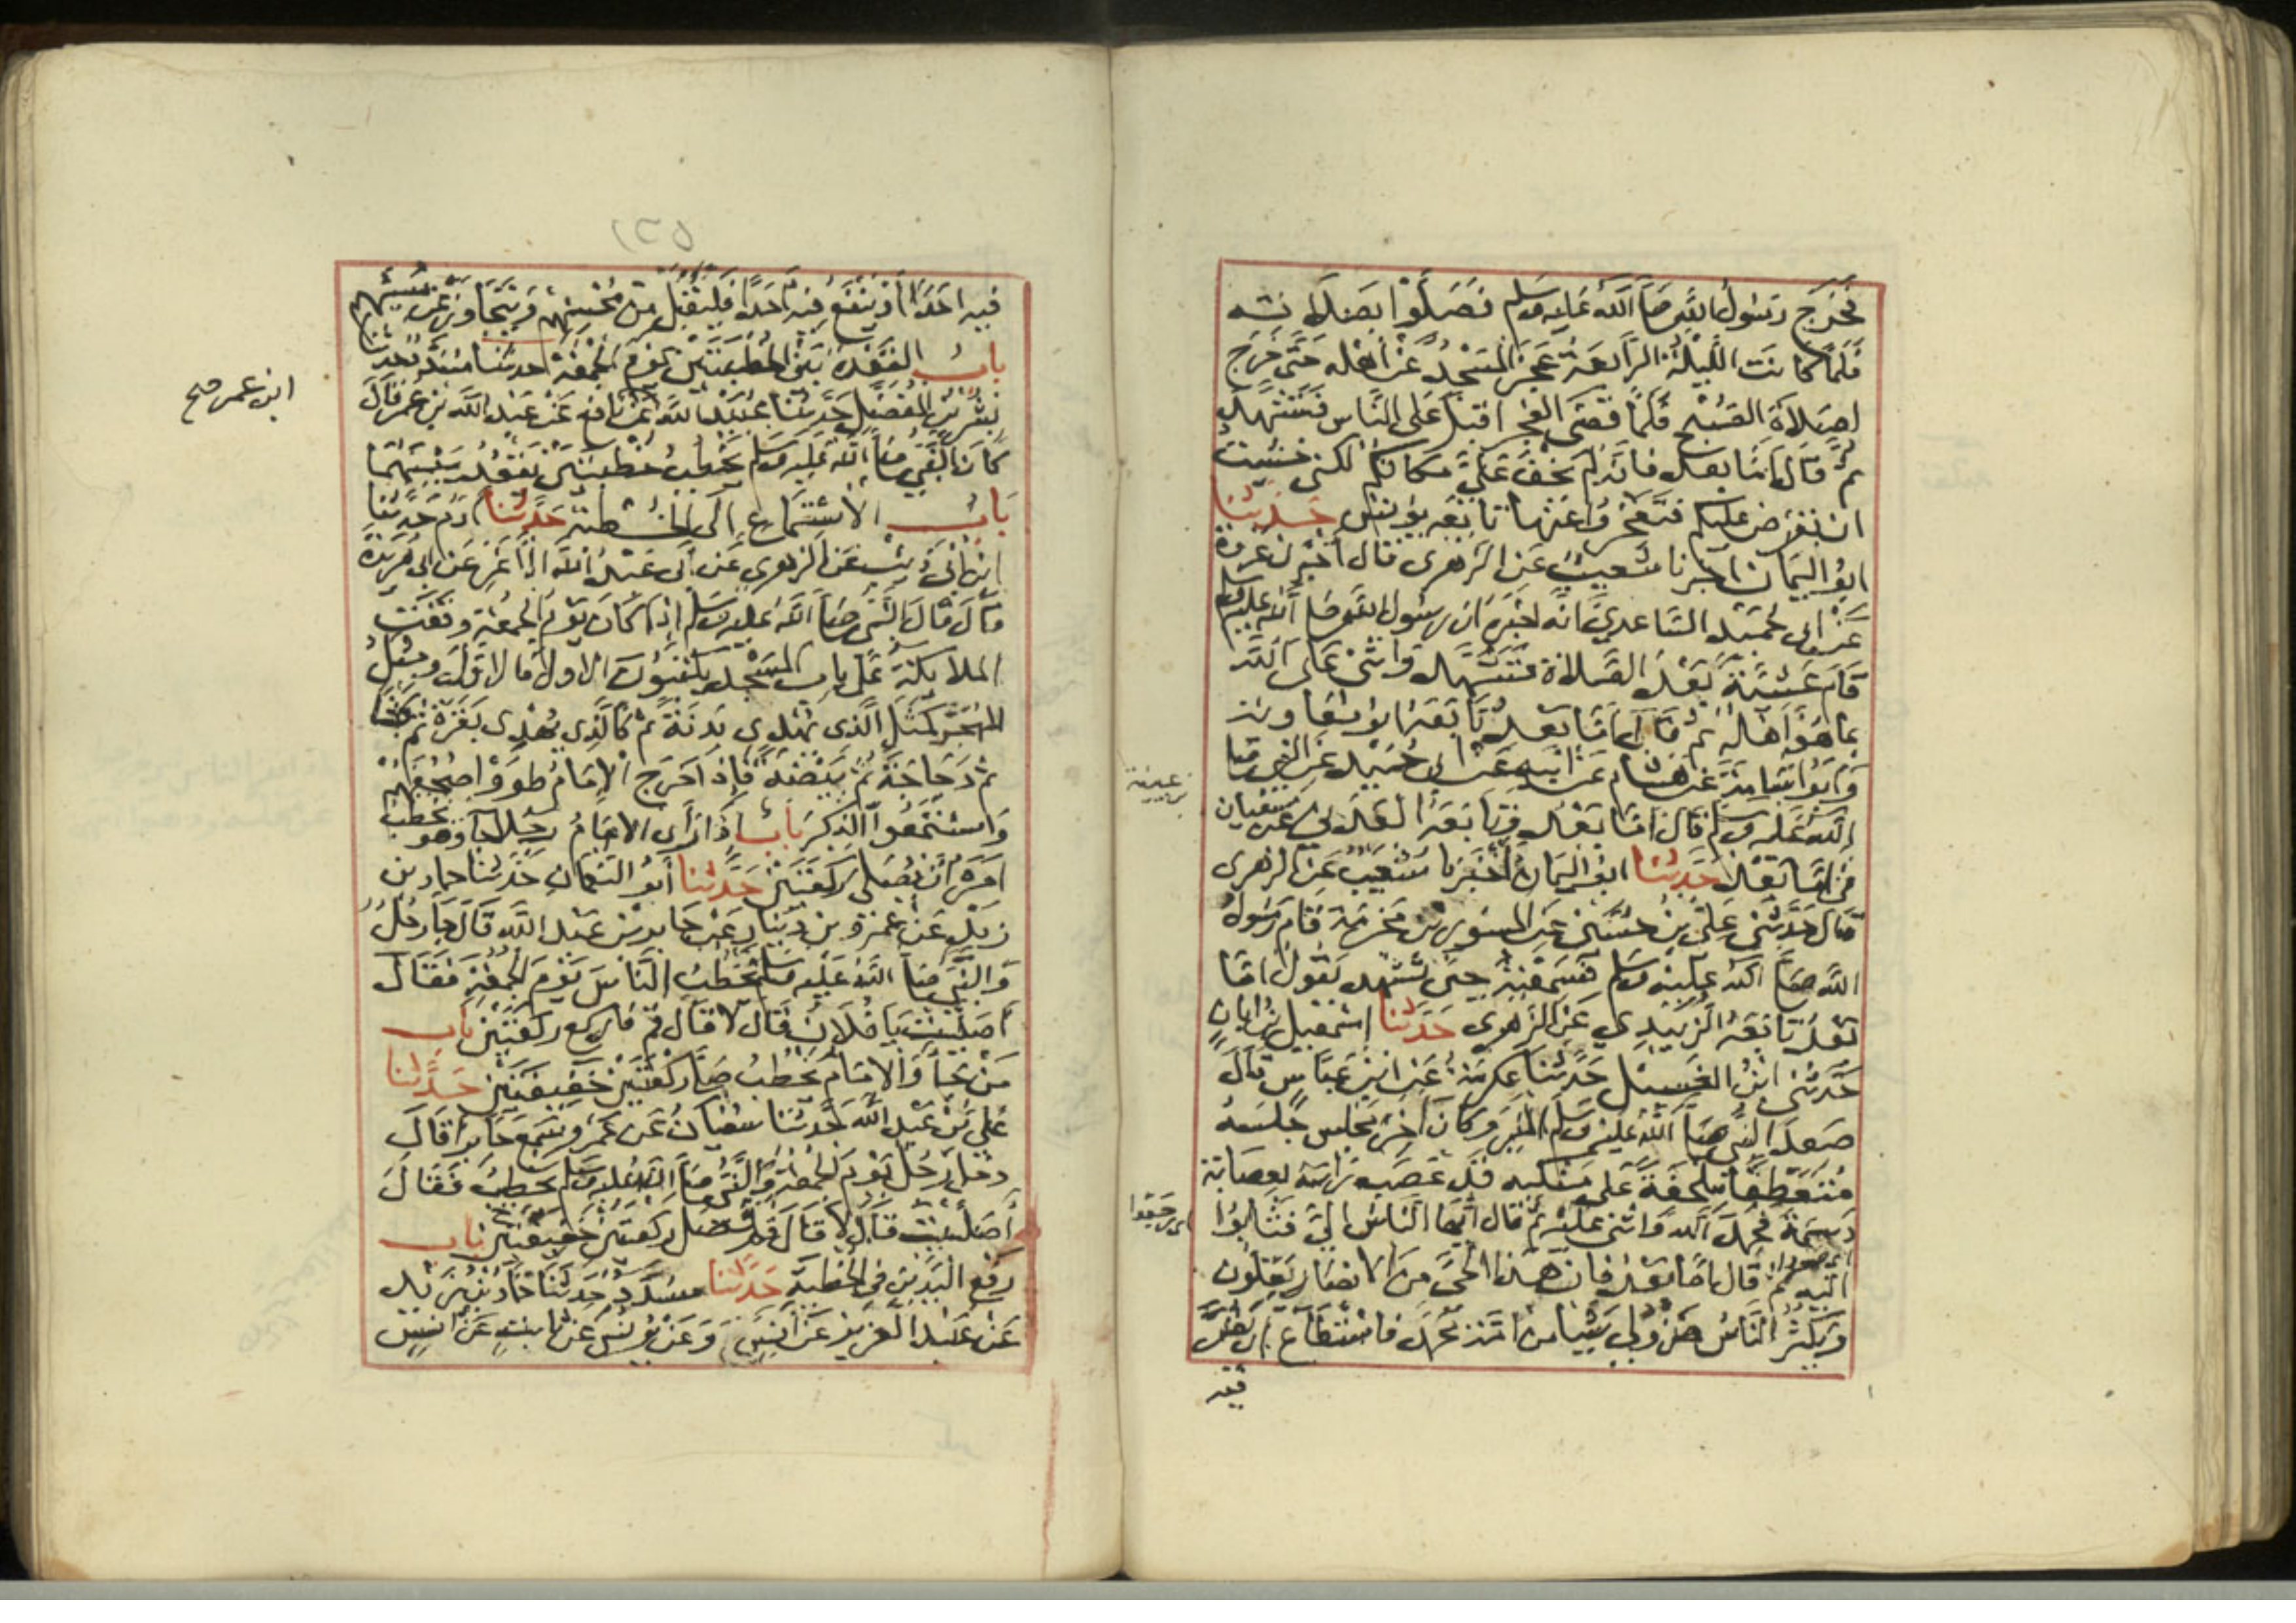 فخرج رسول الله صلى الله عليه وسلم فصلوا بصلاته
فلما كانت الليلة الرابعة عجز المسجد عن اهله حتى خرج
لصلاة الصبح فلما قضى الفجر اقبل على الناس فتشهد
ثم قال اما بعد فانه لم يخف علي مكانكم لكني خشيت
ان تفرض عليكم فتعجزوا عنها تابعه يونس حدثنا
ابو اليمان اخبرنا شعيب عن الزهري قال اخبرني عروة
عن ابي حميد الساعدي انه اخبره ان رسول الله صلى الله عليه وسلم
قام عشية بعد الصلاة فتشهد واثنى على الله
بما هو اهله ثم قال اما بعد تابعه ابو معاوية
وابو اسامة عن هشام عن ابيه عن ابي حميد عن النبي صلى
الله عليه وسلم قال اما بعد وتابعه العدني عن سفيان
في اما بعد حدثنا ابو اليمان اخبرنا شعيب عن الزهري
قال حدثني علي بن حسين عن المسور بن مخرمة قام رسول
الله صلى الله عليه وسلم فسمعته حين تشهد يقول اما
بعد تابعه الزبيدي عن الزهري حدثنا اسمعيل بن ابان
حدثني ابن الغسيل حدثنا عكرمة عن ابن عباس قال
صعد النبي صلى الله عليه وسلم المنبر وكان اخر مجلس جلسه
متعطفا ملحفة على منكبيه قد عصب راسه بعصابة
دسمة فحمد الله واثنى عليه ثم قال ايها الناس الي فثابوا
اليه ثم قال اما بعد فان هذا الحي من الانصار يقلون
ويكثر الناس فمن ولي شيئا من امة محمد فاستطاع ان يضر
فيه
فيه احدا او ينفع فيه احدا فليقبل من محسنهم ويتجاوز عن مسيئهم
باب القعدة بين الخطبتين يوم الجمعة حدثنا مسدد حدثنا
بشر بن المفضل حدثنا عبيد الله عن نافع عن عبد الله بن عمر قال
ابن عمر صح
كان النبي صلى الله عليه وسلم يخطب خطبتين يقعد بينهما
باب الاستماع الى الخطبة حدثنا ادم حدثنا
ابن ابي ذئب عن الزهري عن ابي عبد الله الاغر عن ابي هريرة
قال قال النبي صلى الله عليه وسلم اذا كان يوم الجمعة وقفت
الملايكة على باب المسجد يكتبون الاول فالاول ومثل
المهجر كمثل الذي يهدي بدنة ثم كالذي يهدي بقرة ثم كبشا
ثم دجاجة ثم بيضة فاذا خرج الامام طووا صحفهم
واستمعوا الذكر باب اذا راى الامام رجلا جا وهو يخطب
امره ان يصلي ركعتين حدثنا ابو النعمان حدثنا حماد بن
زيد عن عمرو بن دينار عن جابر بن عبد الله قال جا رجل
والنبي صلى الله عليه وسلم يخطب الناس يوم الجمعة فقال
اصليت يا فلان قال لا قال قم فاركع ركعتين باب
من جا والامام يخطب صلى ركعتين خفيفتين حدثنا
علي بن عبد الله حدثنا سفيان عن عمرو سمع جابرا قال
دخل رجل يوم الجمعة والنبي صلى الله عليه وسلم يخطب فقال
اصليت قال لا قال قم فصل ركعتين خفيفتين باب
رفع اليدين في الخطبة حدثنا مسدد حدثنا حماد بن زيد
عن عبد العزيز عن انس وعن يونس عن ثابت عن انس